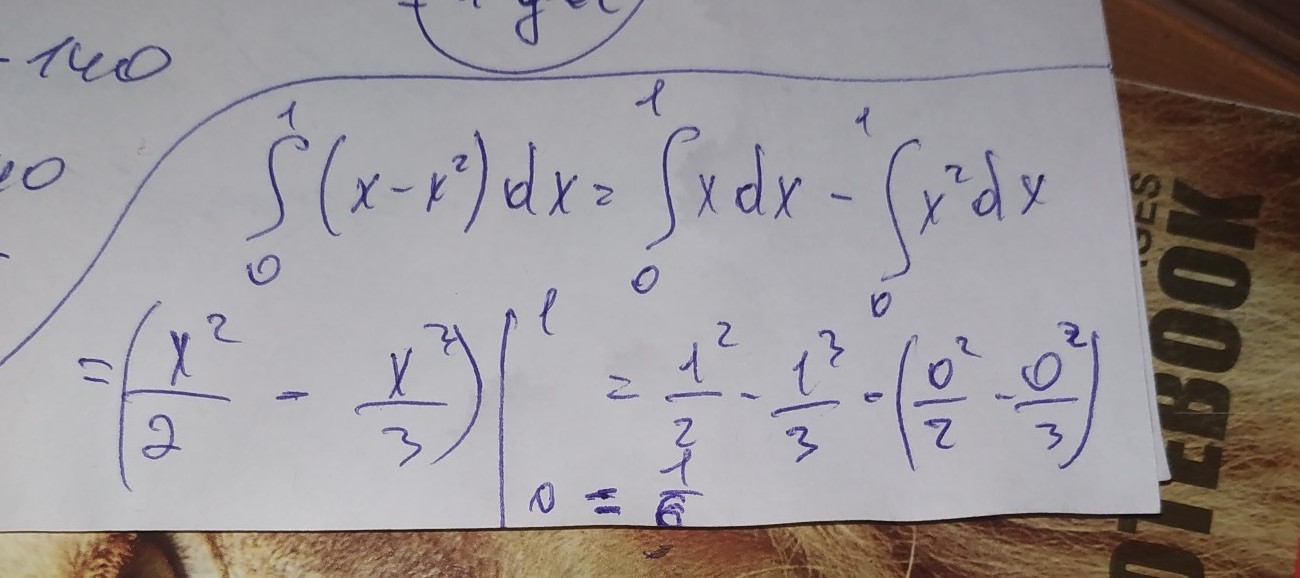 -140
∫₀¹ (x-x²) dx = ∫₀¹ x dx - ∫₀¹ x² dx
= (x²/2 - x³/3) |₀¹ = 1²/2 - 1³/3 - (0²/2 - 0²/3)
= 1/6
OTEBOOK